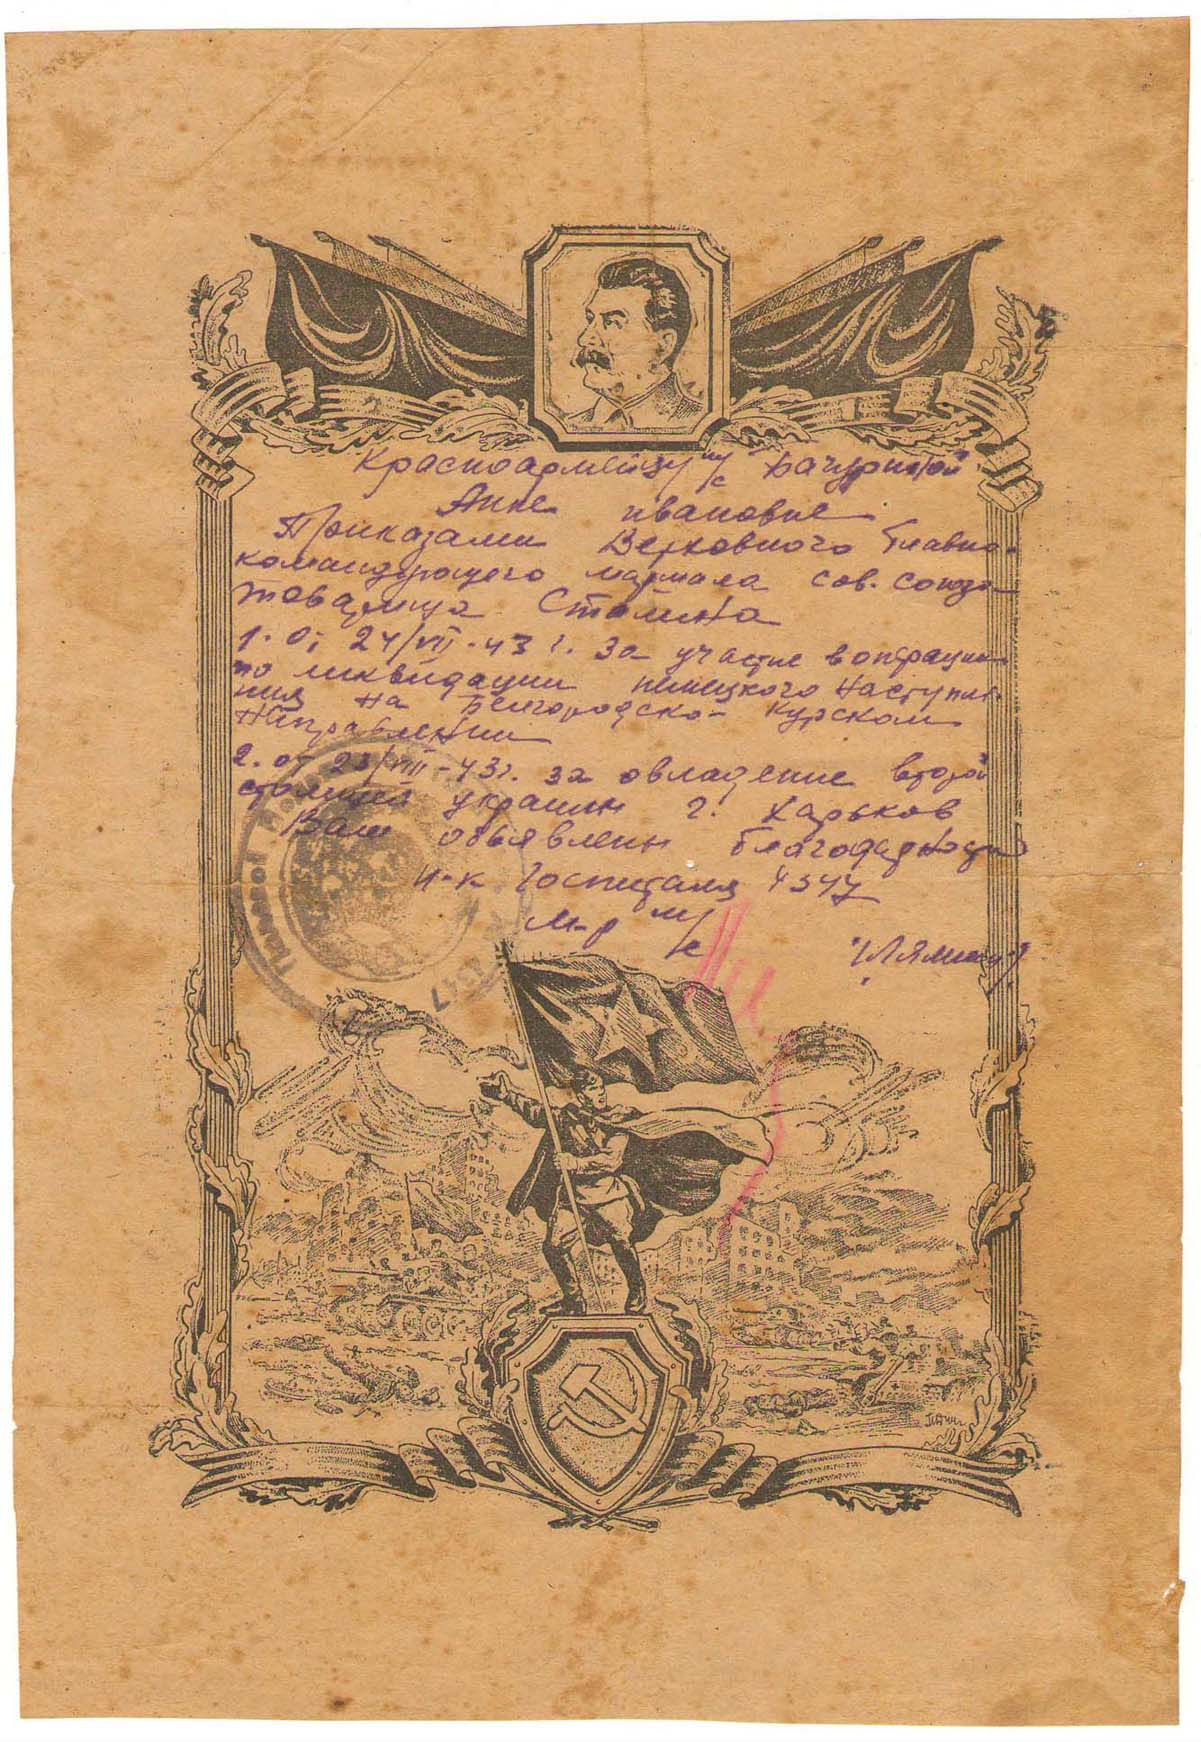 Красноармейцу м/с Бачуриной
Анне Ивановне
Приказами Верховного Главно-
командующего маршала сов. союза
товарища Сталина
1. От 24/VII-43 г. За участие в операции
по ликвидации немецкого наступле-
ния на Белгородско-Курском
Направлении
2. от 23/VIII-43 г. за овладение второй
столицей украины г. Харьков
Вам объявлены благодарности
Н-к Госпиталя 4347
М-р м/с
Полевой
4347